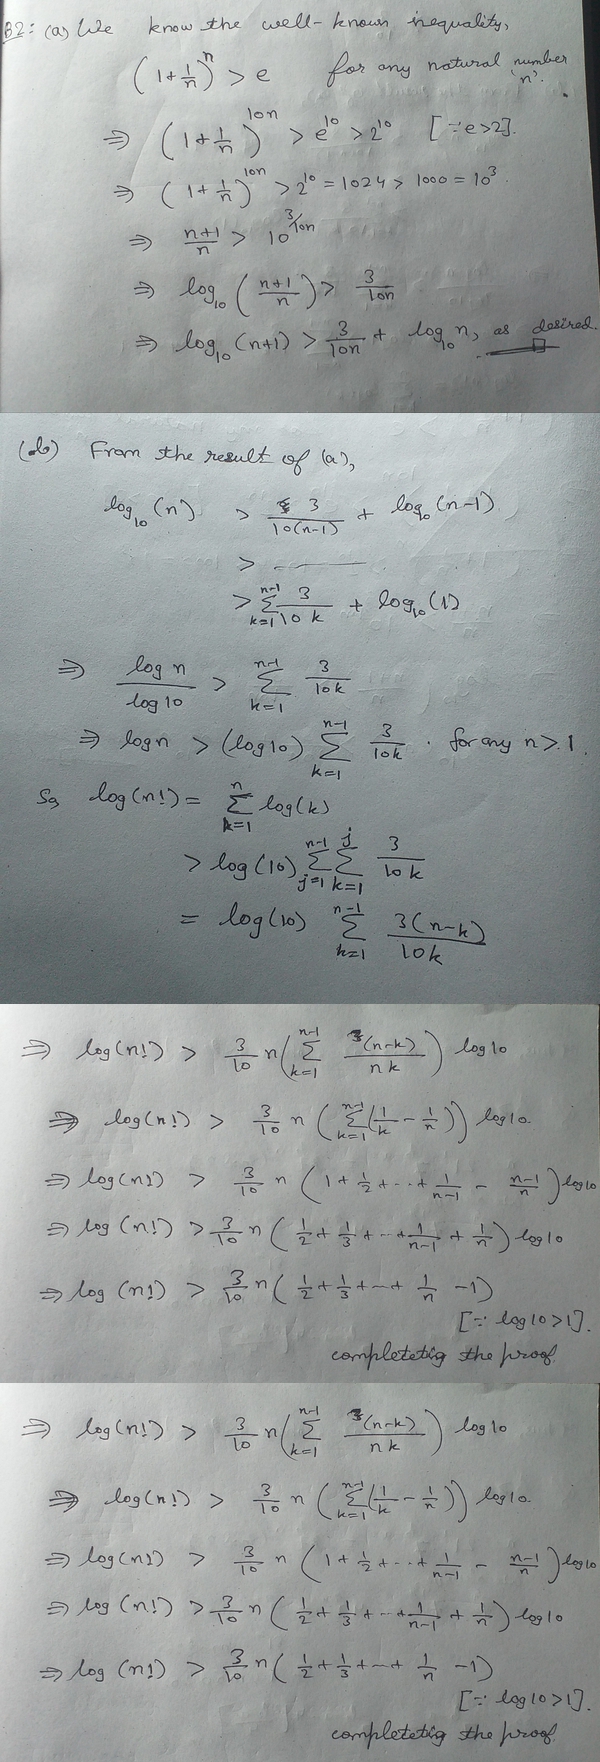 B2: (a) We know the well-known inequality,
(1+1/n)^n > e for any natural number 'n'.
⇒ (1+1/n)^10n > e^10 > 2^10 [∵e>2].
⇒ (1+1/n)^10n > 2^10 = 1024 > 1000 = 10^3.
⇒ n+1/n > 10^3/10n
⇒ log_10 (n+1/n) > 3/10n
⇒ log_10 (n+1) > 3/10n + log_10 n, as desired.
(b) From the result of (a),
log_10 (n) > 3/10(n-1) + log_10 (n-1)
> ———
> ∑_{k=1}^{n-1} 3/10k + log_10 (1)
⇒ log n/log 10 > ∑_{k=1}^{n-1} 3/10k
⇒ log n > (log 10) ∑_{k=1}^{n-1} 3/10k . for any n>1.
So, log(n!) = ∑_{k=1}^{n} log(k)
> log(10) ∑_{j=1}^{n-1} ∑_{k=1}^{j} 3/10k
= log(10) ∑_{k=1}^{n-1} 3(n-k)/10k
⇒ log(n!) > 3/10 n(∑_{k=1}^{n-1} (n-k)/nk) log 10
⇒ log(n!) > 3/10 n (∑_{k=1}^{n-1} (1/k - 1/n)) log 10.
⇒ log(n!) > 3/10 n (1 + 1/2 + ... + 1/n-1 - n-1/n) log 10
⇒ log(n!) > 3/10 n (1/2 + 1/3 + ... + 1/n-1 + 1/n) log 10
⇒ log(n!) > 3/10 n (1/2 + 1/3 + ... + 1/n -1)
[∵ log 10 > 1].
completeting the proof.
⇒ log(n!) > 3/10 n(∑_{k=1}^{n-1} (n-k)/nk) log 10
⇒ log(n!) > 3/10 n (∑_{k=1}^{n-1} (1/k - 1/n)) log 10.
⇒ log(n!) > 3/10 n (1 + 1/2 + ... + 1/n-1 - n-1/n) log 10
⇒ log(n!) > 3/10 n (1/2 + 1/3 + ... + 1/n-1 + 1/n) log 10
⇒ log(n!) > 3/10 n (1/2 + 1/3 + ... + 1/n -1)
[∵ log 10 > 1].
completeting the proof.